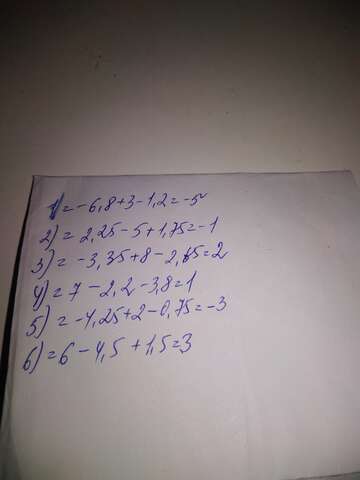 1) = -6,8+3-1,2=-5
2) = 2,25-5+1,75=-1
3) = -3,35+8-2,65=2
4) = 7-2,2-3,8=1
5) = -4,25+2-0,75=-3
6) = 6-4,5+1,5=3